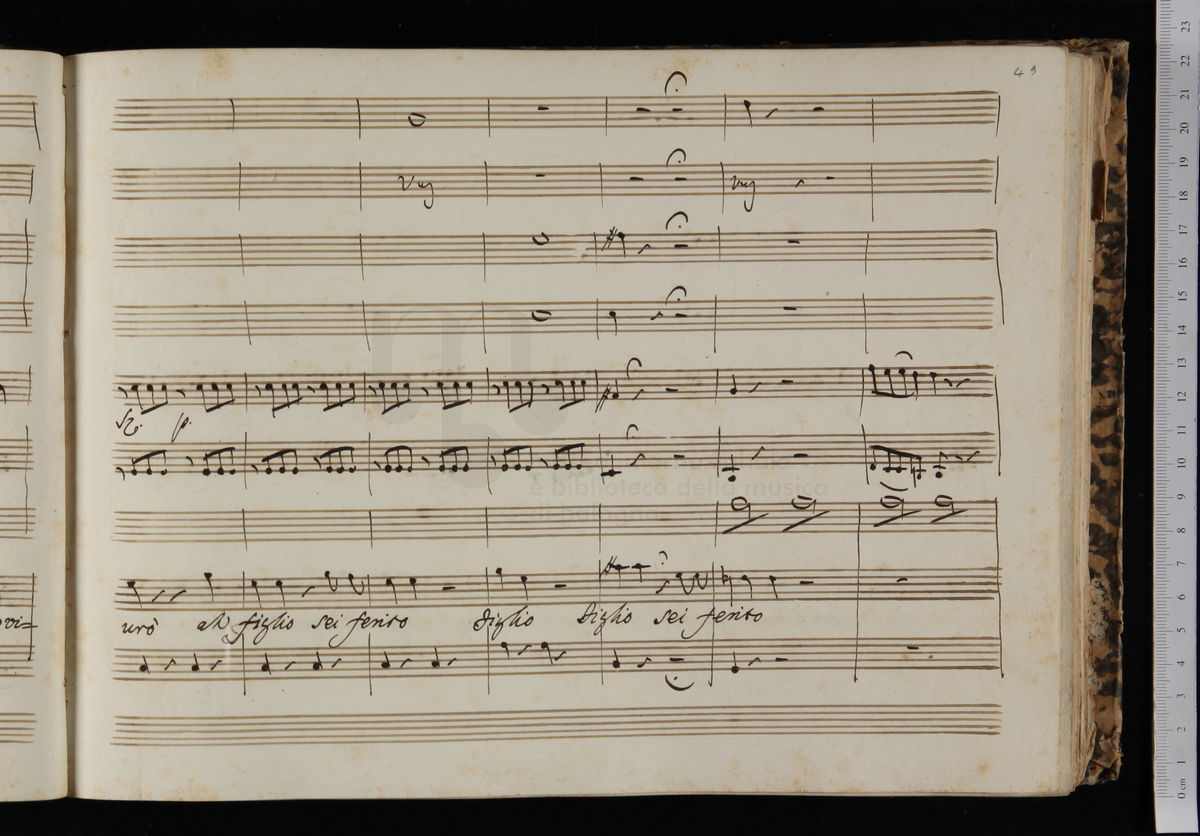 49
Vnj
Vnj
p.
ovi=
urò ah figlio sei ferito figlio figlio sei ferito
è biblioteca della musica
23
22
21
20
19
18
17
16
15
14
13
12
11
10
9
8
7
6
5
4
3
2
1
0 cm